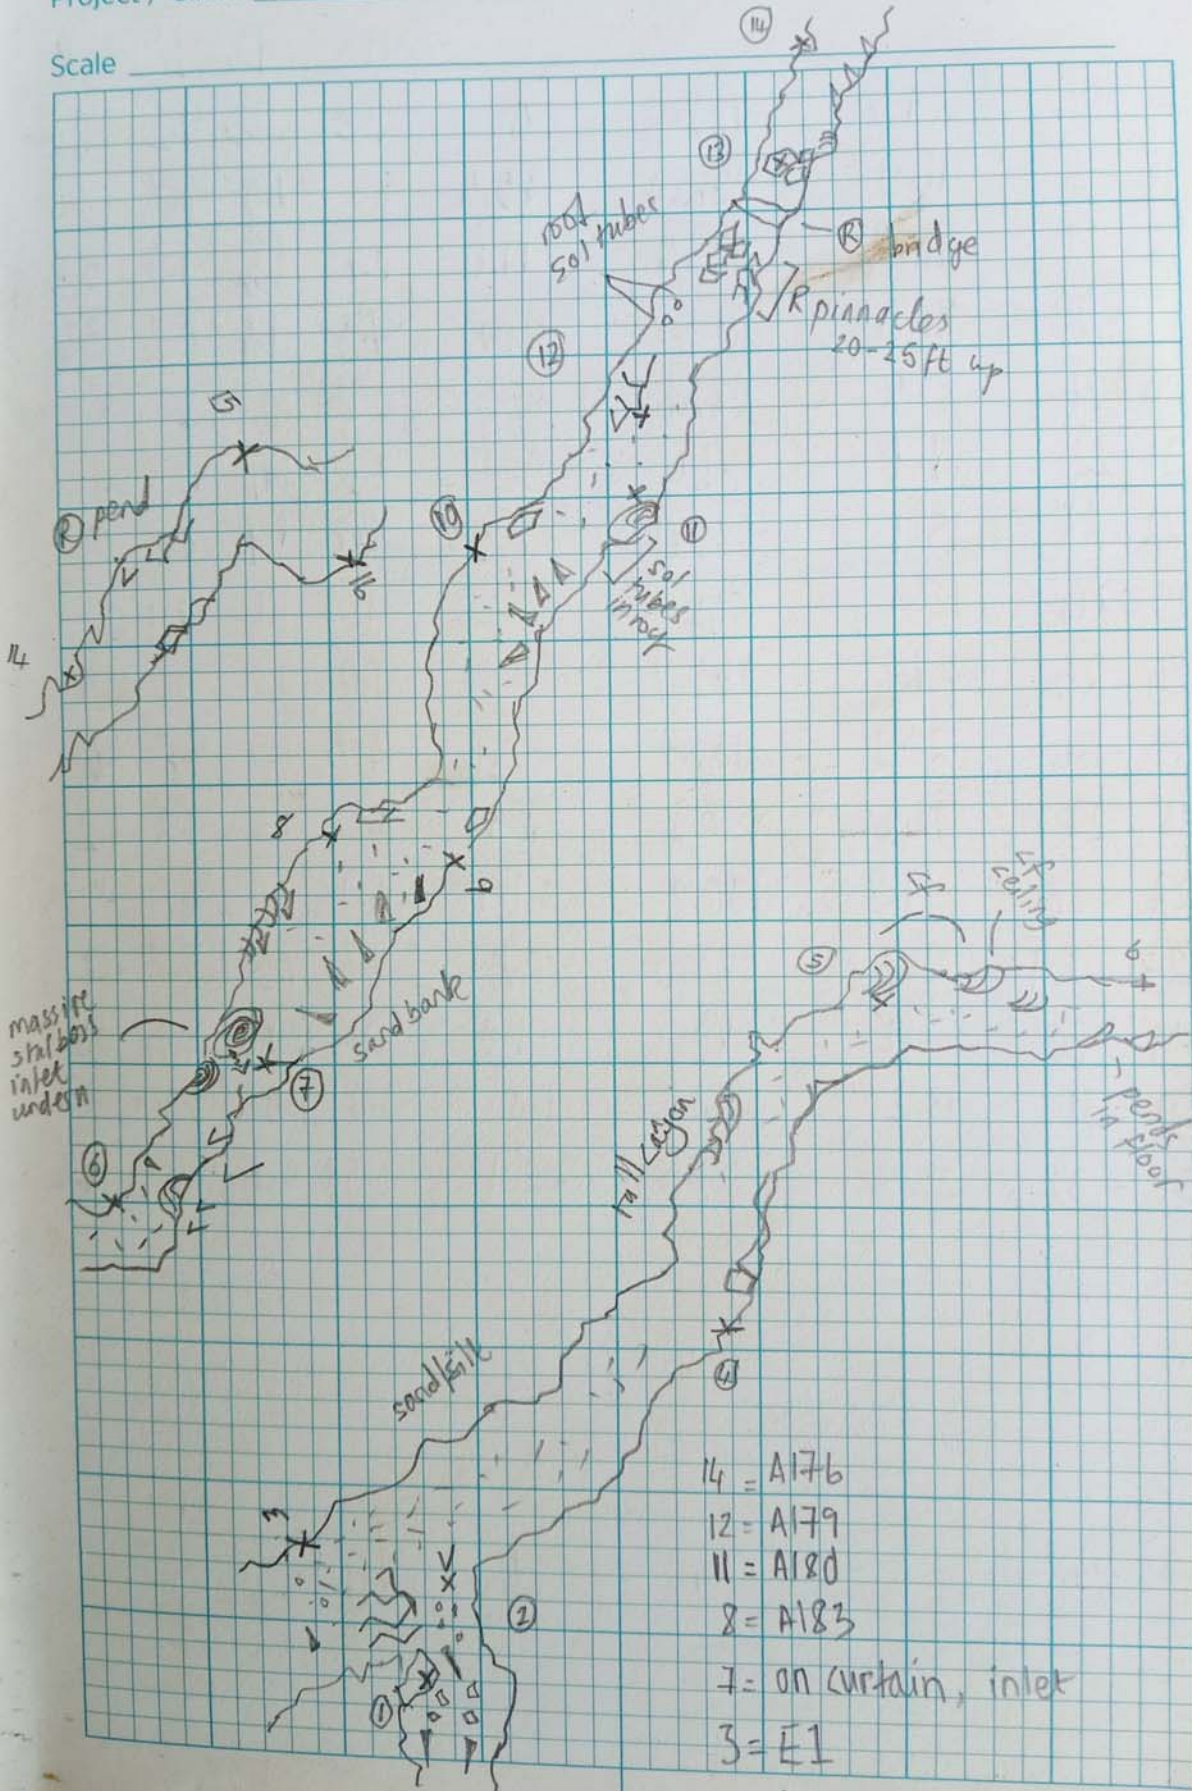 Scale
14
13
roof
sol tubes
R bridge
R pinnacles
20-25 ft up
12
15
R pend
10
11
sol
tubes
in rock
16
14
8
9
sandbank
massive
stal boss
inlet
undern
7
6
5
ceiling
6
pends
in floor
tall canyon
4
sand/silt
3
2
1
14 = A176
12 = A179
11 = A180
8 = A183
7 = on curtain, inlet
3 = E1